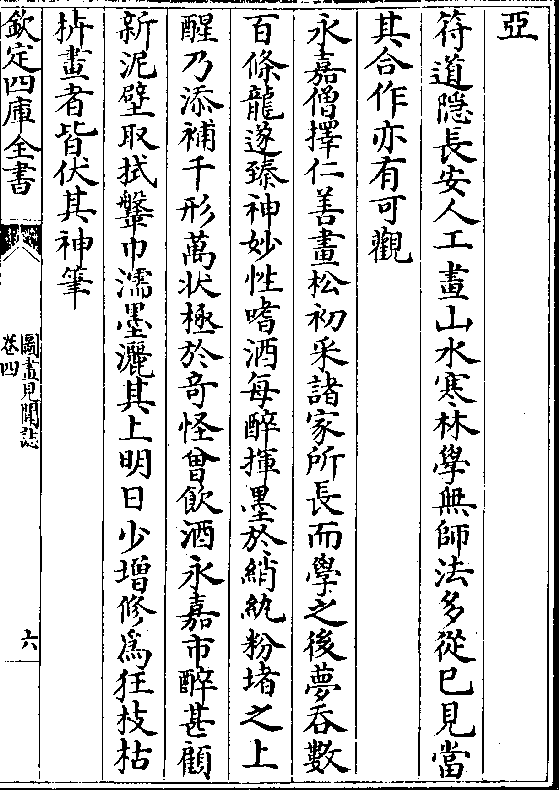 亞
符道隠長安人工畫山水寒林學無師法多從已見當
其合作亦有可觀
永嘉僧擇仁善畫松初采諸家所長而學之後夢吞數
百條龍遂臻神妙性嗜酒每醉揮墨於綃紈粉堵之上
醒乃添補千形萬状極於竒怪曾飲酒永嘉市醉甚顧
新泥壁取拭盤巾濡墨灑其上明日少增修為狂枝枯
枿畫者皆伏其神筆
欽定四庫全書
圖畫見聞誌
卷四
六